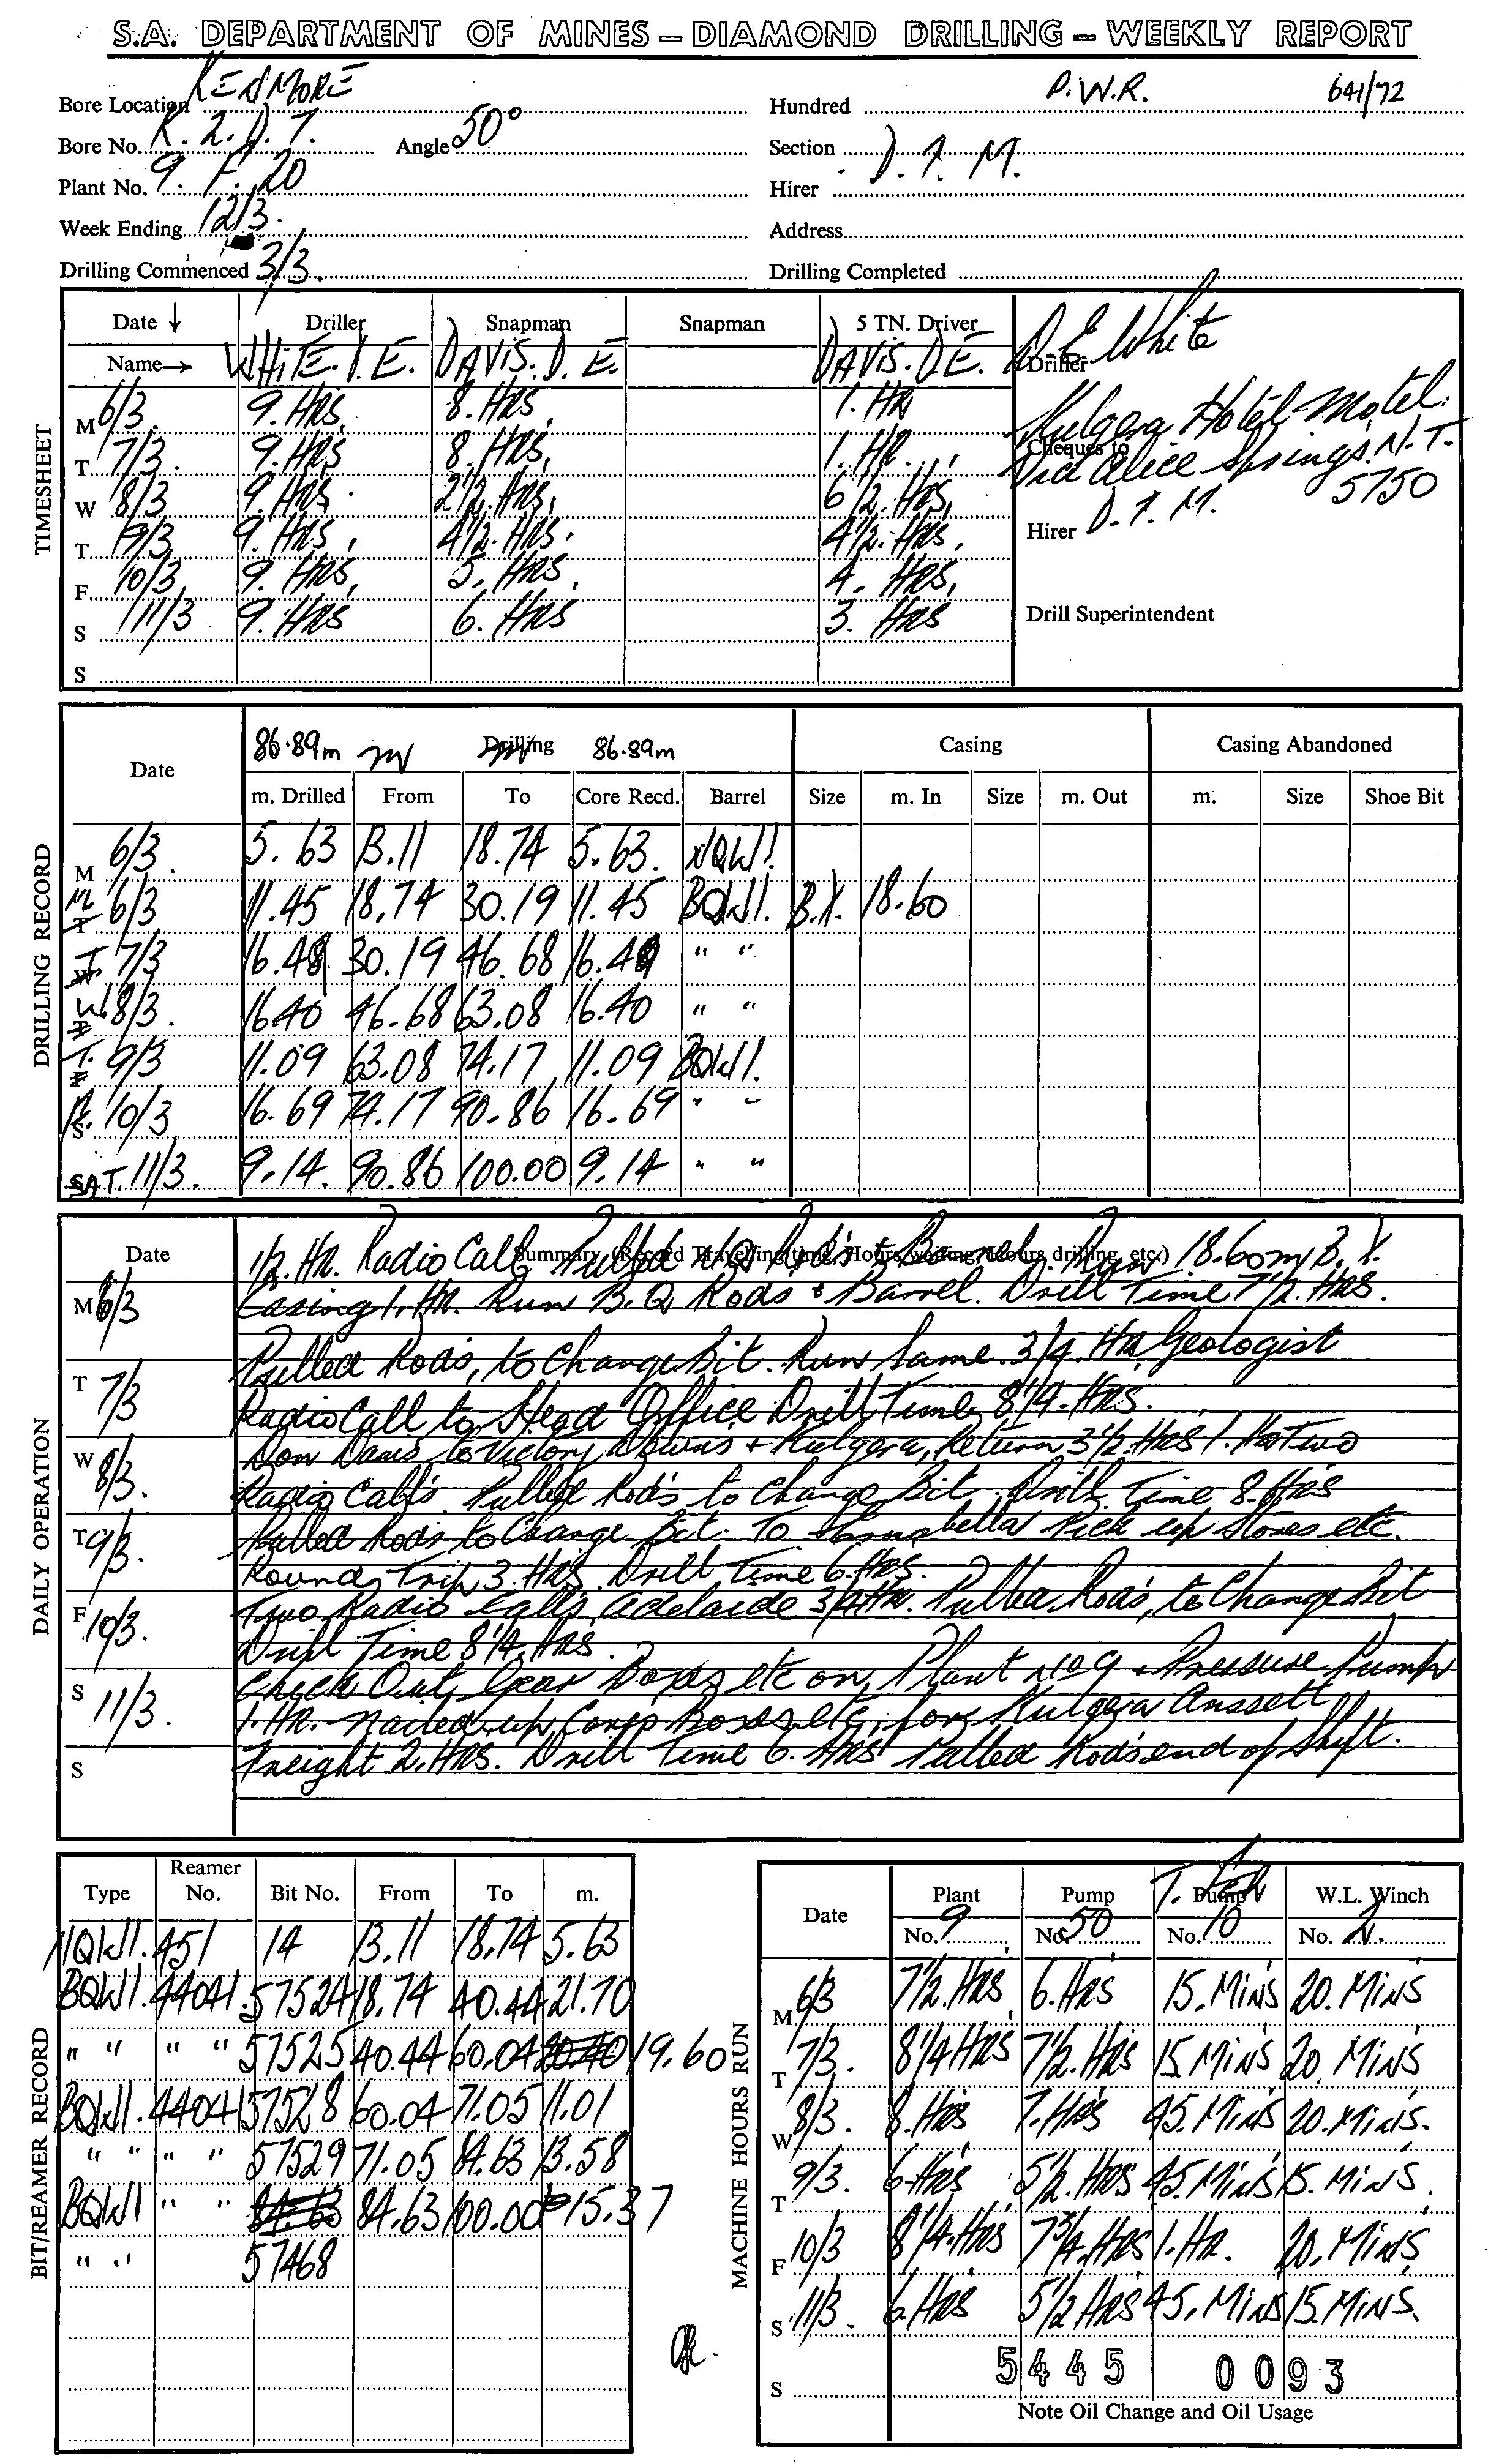 S.A. DEPARTMENT OF MINES – DIAMOND DRILLING – WEEKLY REPORT
Bore Location KENMORE Hundred P.W.R. 641/72
Bore No. K. 2. D. 7. Angle 50° Section D. I. M.
Plant No. 9. F. 20 Hirer
Week Ending 12/3. Address
Drilling Commenced 3/3. Drilling Completed
TIMESHEET
Date ↓ Driller Snapman Snapman 5 TN. Driver D. E. White
Name→ WHITE. D. E. DAVIS. D. E. DAVIS. D.E. Driller
M 6/3. 9. HRS, 8. HRS, 1. HR Kulgera Hotel-Motel.
T 7/3. 9. HRS 8. HRS, 1. HR. Cheques to Via Alice Springs. N.T. 5750
W 8/3 9. HRS. 2 1/2. HRS, 6 1/2. HRS,
T 9/3 9. HRS, 4 1/2. HRS. 4 1/2. HRS, Hirer D. I. M.
F 10/3 9. HRS, 5. HRS. 4. HRS,
S 11/3 9. HRS 6. HRS 3. HRS Drill Superintendent
S
DRILLING RECORD
Date 86.89m m Drilling 86.89m Casing Casing Abandoned
m. Drilled From To Core Recd. Barrel Size m. In Size m. Out m. Size Shoe Bit
M 6/3. 5.63 13.11 18.74 5.63. NQWl.
M 6/3 11.45 18.74 30.19 11.45 BQWl. B.X. 18.60
T 7/3 16.48 30.19 46.68 16.49 " "
W 8/3. 16.40 46.68 63.08 16.40 " "
T. 9/3 11.09 63.08 74.17 11.09 BQWl.
F. 10/3 16.69 74.17 90.86 16.69 " "
SAT. 11/3. 9.14. 90.86 100.00 9.14 " "
DAILY OPERATION
Date Summary (Record Travelling time, Hours waiting, Hours drilling, etc.)
1/2. HR. Radio Call, Pulled NQ Rods + Barrel. Run 18.60m B.X.
M 6/3 Casing 1. HR. Run B.Q Rods + Barrel. Drill Time 7 1/2. HRS.
Pulled Rods, to Change Bit. Run Same. 3/4. HR. Geologist
T 7/3 Radio Call to Head Office Drill Time 8 1/4. HRS.
W 8/3. Don Davis to Victory Downs + Kulgera, Return 3 1/2. HRS 1. HR Two
Radio Calls. Pulled Rods to Change Bit. Drill Time 8. HRS
T 9/3. Pulled Rods to Change Bit. To Ernabella Pick up Stores etc.
Round Trip 3. HRS. Drill Time 6. HRS.
F 10/3. Two Radio Calls, Adelaide 3/4 HR. Pulled Rods, to Change Bit
Drill Time 8 1/4. HRS.
S 11/3. Check Out, Gear Boxes etc on Plant No 9 + Pressure Pump
1. HR. Nailed up Core Boxes etc, for Kulgera Anssett
S Freight 2. HRS. Drill Time 6. HRS Pulled Rods end of Shift.
BIT/REAMER RECORD
Type Reamer No. Bit No. From To m.
NQWl. 451 14 13.11 18.74 5.63
BQWl. 44041. 57524 18.74 40.44 21.70
" " " " 57525 40.44 60.04 19.60
BQWl. 44041 57528 60.04 71.05 11.01
" " " " 57529 71.05 84.63 13.58
BQWl " " 84.63 100.00 15.37
" " 57468
MACHINE HOURS RUN
Date Plant Pump Pump W.L. Winch
No. 9 No. 50 No. 10 No. 2.
M 6/3 7 1/2. HRS 6. HRS 15. MINS 20. MINS
T 7/3. 8 1/4 HRS 7 1/2. HRS 15 MINS 20. MINS
W 8/3. 8. HRS 7. HRS 45. MINS 20. MINS.
T 9/3. 6. HRS 5 1/2. HRS 45. MINS 15. MINS.
F 10/3 8 1/4. HRS 7 3/4. HRS 1. HR. 20. MINS
S 11/3. 6. HRS 5 1/2 HRS 45. MINS 15. MINS.
S 5445 0093
Note Oil Change and Oil Usage